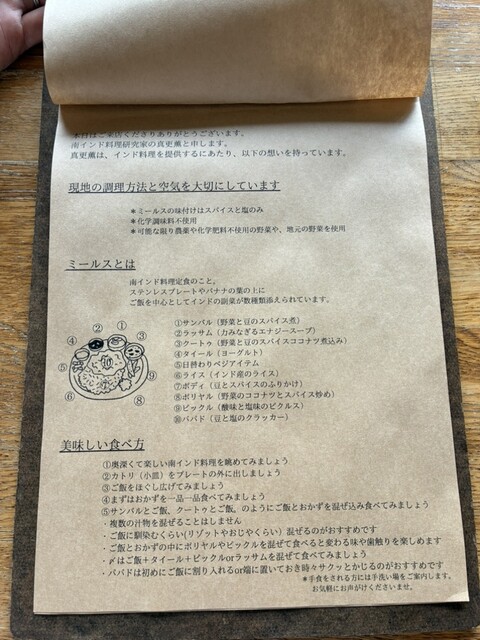 本日はご来店くださりありがとうございます。
南インド料理研究家の真更薫と申します。
真更薫は、インド料理を提供するにあたり、以下の想いを持っています。
現地の調理方法と空気を大切にしています
＊ミールスの味付けはスパイスと塩のみ
＊化学調味料不使用
＊可能な限り農薬や化学肥料不使用の野菜や、地元の野菜を使用
ミールスとは
南インド料理定食のこと。
ステンレスプレートやバナナの葉の上に
ご飯を中心としてインドの副菜が数種類添えられています。
①サンバル（野菜と豆のスパイス煮）
②ラッサム（力みなぎるエナジースープ）
③クートゥ（野菜と豆のスパイスココナツ煮込み）
④タイール（ヨーグルト）
⑤日替わりベジアイテム
⑥ライス（インド産のライス）
⑦ポディ（豆とスパイスのふりかけ）
⑧ポリヤル（野菜のココナツとスパイス炒め）
⑨ピックル（酸味と塩味のピクルス）
⑩パパド（豆と塩のクラッカー）
① ② ③ ④ ⑤ ⑥ ⑧ ⑨
美味しい食べ方
①奥深くて楽しい南インド料理を眺めてみましょう
②カトリ（小皿）をプレートの外に出しましょう
③ご飯をほぐし広げてみましょう
④まずはおかずを一品一品食べてみましょう
⑤サンバルとご飯、クートゥとご飯、のようにご飯とおかずを混ぜ込み食べてみましょう
・複数の汁物を混ぜることはしません
・ご飯に馴染むくらい(リゾットやおじやくらい）混ぜるのがおすすめです
・ご飯とおかずの中にポリヤルやピックルを混ぜて食べると変わる味や歯触りを楽しめます
・〆はご飯＋タイール＋ピックルorラッサムを混ぜて食べてみましょう
・パパドは初めにご飯に割り入れるor端に置いておき時々サクッとかじるのがおすすめです
＊手食をされる方には手洗い場をご案内します。
お気軽にお声がけくださいませ。